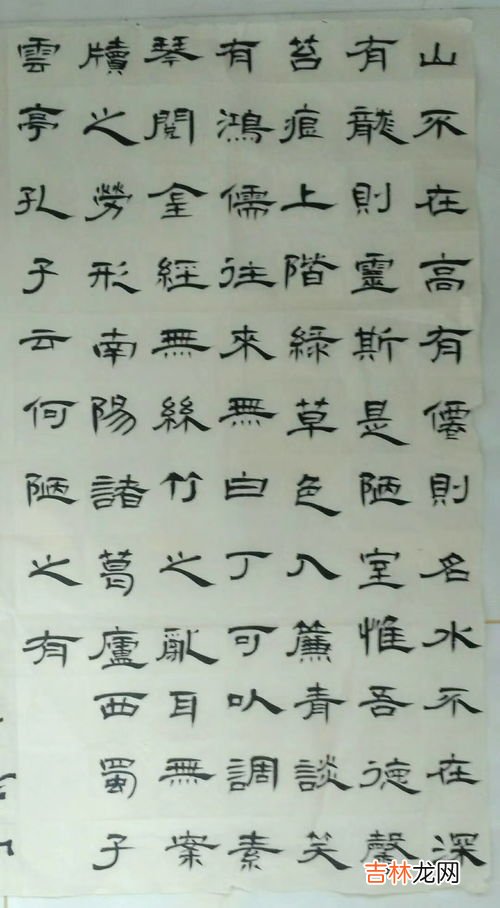 山不在高有僊則名水不在深
有龍則靈斯是陋室惟吾德馨
苔痕上階綠草色入簾青談笑
有鴻儒往來無白丁可以調素
琴閱金經無絲竹之亂耳無案
牘之勞形南陽諸葛廬西蜀子
雲亭孔子云何陋之有
吉林龙网